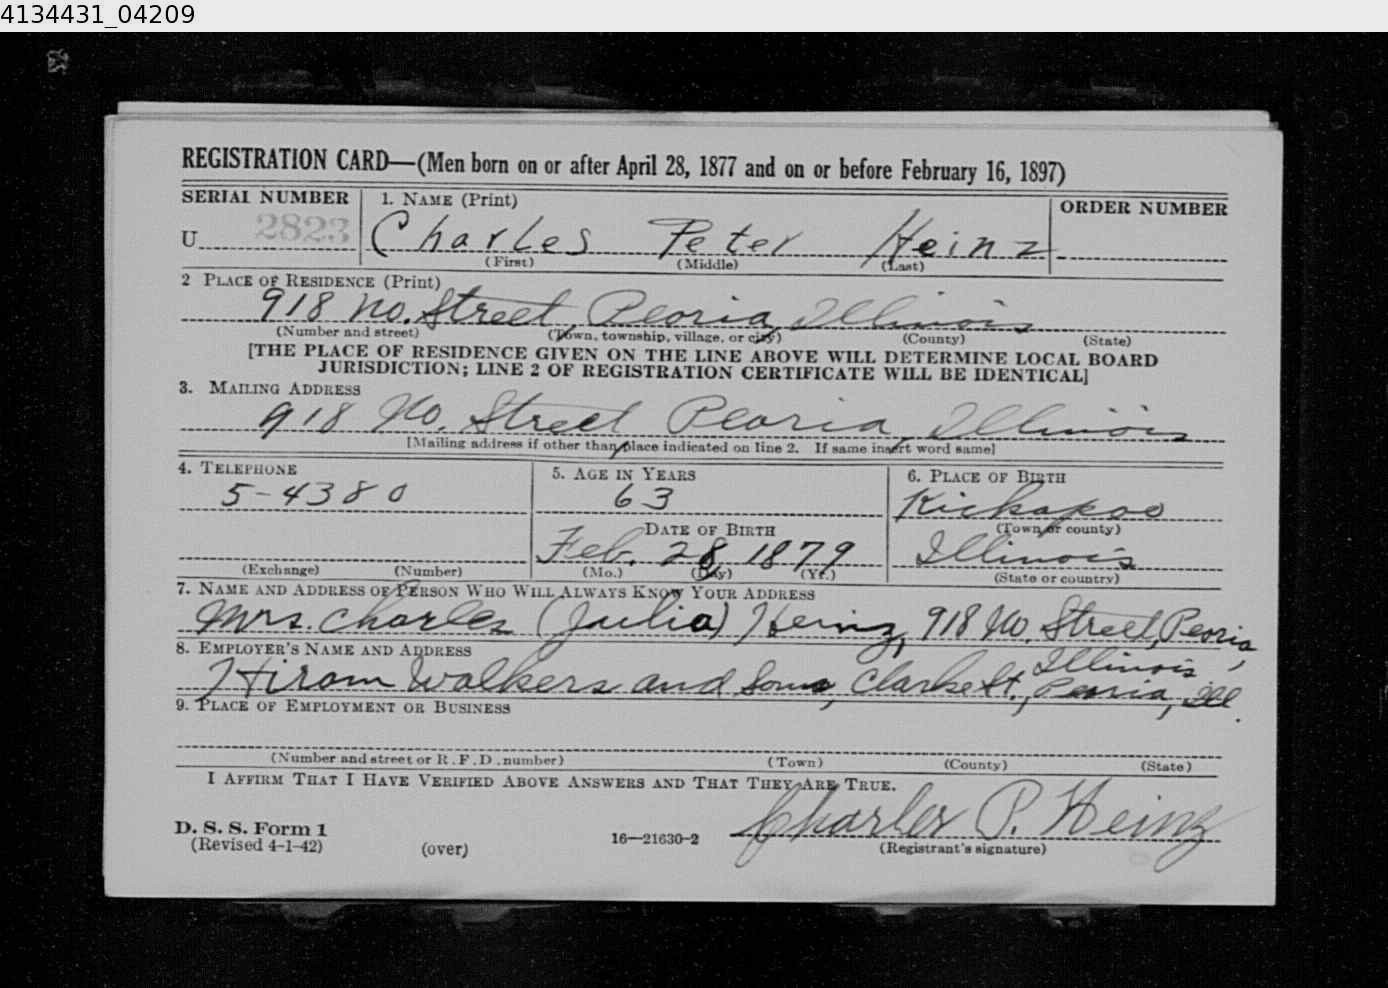 4134431_04209
REGISTRATION CARD—(Men born on or after April 28, 1877 and on or before February 16, 1897)
SERIAL NUMBER 1. NAME (Print) ORDER NUMBER
U 2823 Charles Peter Heinz
(First) (Middle) (Last)
2 PLACE OF RESIDENCE (Print)
918 No. Street, Peoria, Illinois
(Number and street) (Town, township, village, or city) (County) (State)
[THE PLACE OF RESIDENCE GIVEN ON THE LINE ABOVE WILL DETERMINE LOCAL BOARD
JURISDICTION; LINE 2 OF REGISTRATION CERTIFICATE WILL BE IDENTICAL]
3. MAILING ADDRESS
918 No. Street Peoria, Illinois
[Mailing address if other than place indicated on line 2. If same insert word same]
4. TELEPHONE 5. AGE IN YEARS 6. PLACE OF BIRTH
5-4380 63 Kickapoo
DATE OF BIRTH (Town or county)
Feb. 28, 1879 Illinois
(Exchange) (Number) (Mo.) (Day) (Yr.) (State or country)
7. NAME AND ADDRESS OF PERSON WHO WILL ALWAYS KNOW YOUR ADDRESS
Mrs. Charles (Julia) Heinz, 918 No. Street, Peoria,
8. EMPLOYER'S NAME AND ADDRESS Illinois
Hiram Walkers and Sons, Clarke St., Peoria, Ill.
9. PLACE OF EMPLOYMENT OR BUSINESS
(Number and street or R. F. D. number) (Town) (County) (State)
I AFFIRM THAT I HAVE VERIFIED ABOVE ANSWERS AND THAT THEY ARE TRUE.
Charles P. Heinz
D. S. S. Form 1
(Revised 4-1-42) (over) 16—21630-2 (Registrant's signature)